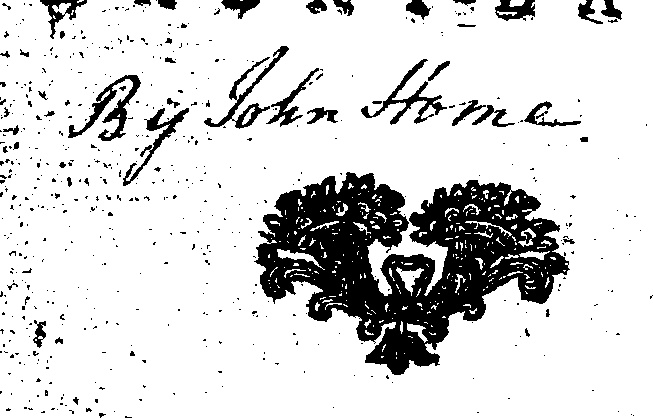 By John Home.